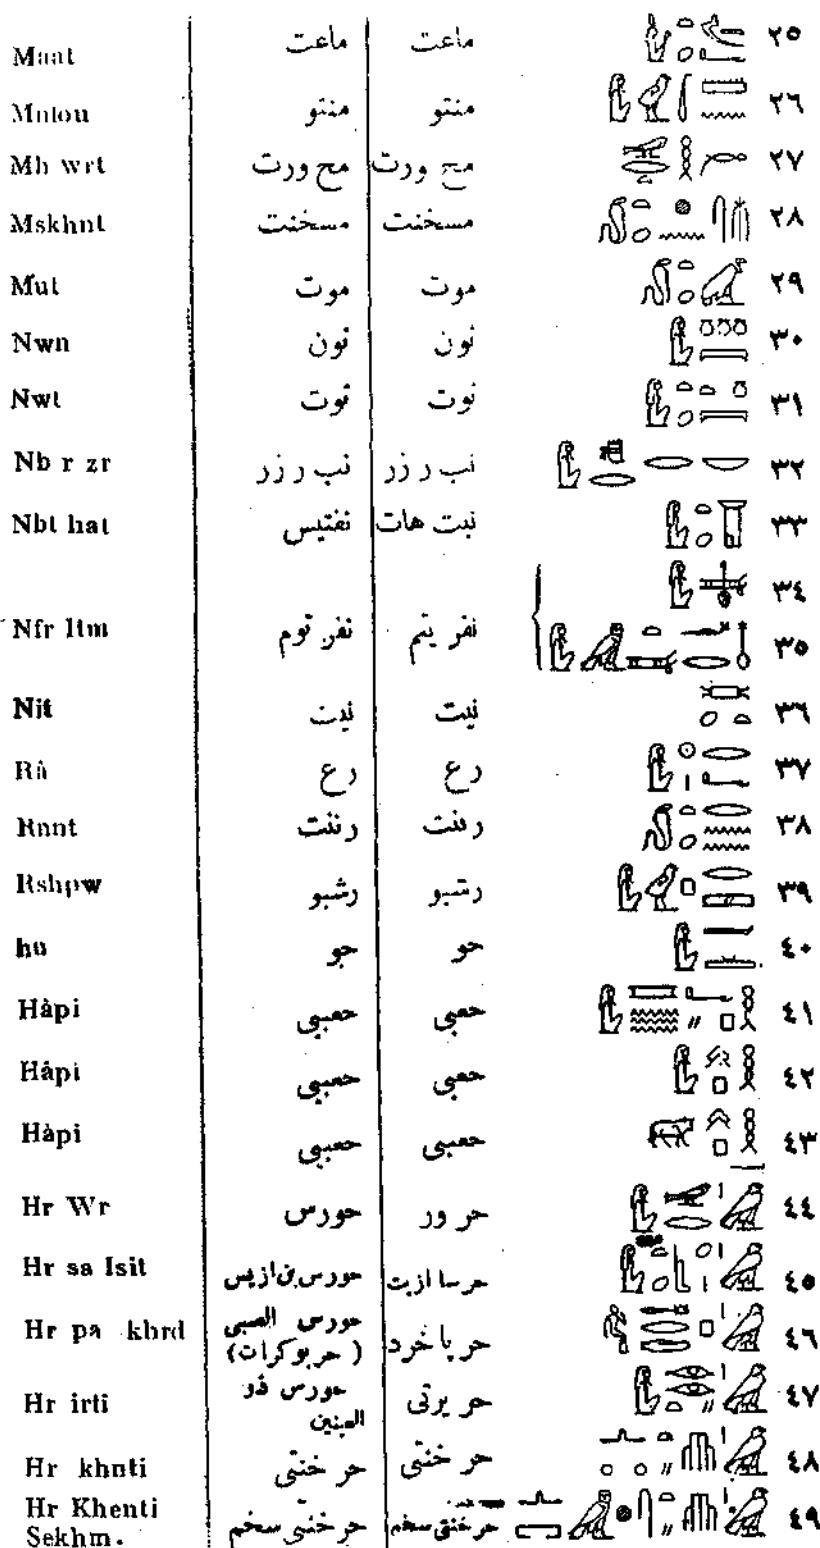 Maat ماعت ماعت ٢٥
Mntou منتو منتو ٢٦
Mh wrt مح ورت مح ورت ٢٧
Mskhnt مسخنت مسخنت ٢٨
Mut موت موت ٢٩
Nwn نون نون ٣٠
Nwt نوت نوت ٣١
Nb r zr نب ر زر نب ر زر ٣٢
Nbt hat نفتيس نبت هات ٣٣
٣٤
Nfr Itm نفر توم نفر يتم ٣٥
Nit نيت نيت ٣٦
Râ رع رع ٣٧
Rnnt رننت رننت ٣٨
Rshpw رشبو رشبو ٣٩
hu حو حو ٤٠
Hàpi حعبي حعبي ٤١
Hâpi حعبي حعبي ٤٢
Hàpi حعبي حعبي ٤٣
Hr Wr حورس حر ور ٤٤
Hr sa Isit حورس بن ازيس حر سا ازيت ٤٥
Hr pa khrd حورس الصبي (حربوكرات) حر پا خرد ٤٦
Hr irti حورس ذو العينين حر يرتى ٤٧
Hr khnti حر خنتى حر خنتى ٤٨
Hr Khenti Sekhm. حر خنتى سخم حر خنتى سخم ٤٩